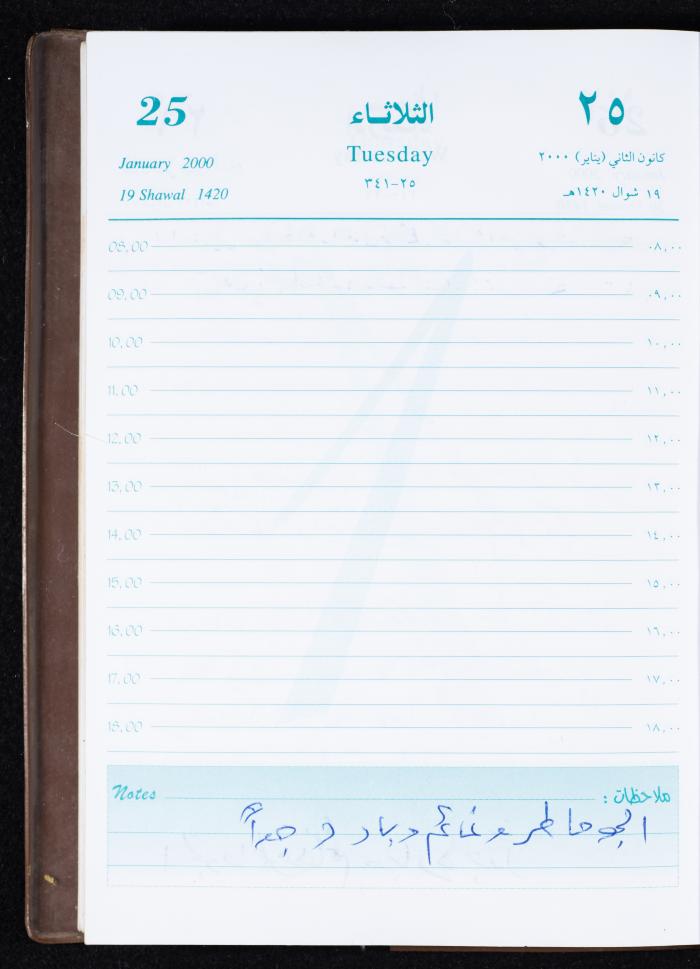 25 الثلاثاء ٢٥
January 2000 Tuesday كانون الثاني (يناير) ٢٠٠٠
19 Shawal 1420 ٢٥-٣٤١ ١٩ شوال ١٤٢٠هـ
08.00 ٠٨,٠٠
09.00 ٠٩,٠٠
10.00 ١٠,٠٠
11.00 ١١,٠٠
12.00 ١٢,٠٠
13.00 ١٣,٠٠
14.00 ١٤,٠٠
15.00 ١٥,٠٠
16.00 ١٦,٠٠
17.00 ١٧,٠٠
18.00 ١٨,٠٠
Notes ملاحظات :
الجو ماطر وغائم وبارد جداً